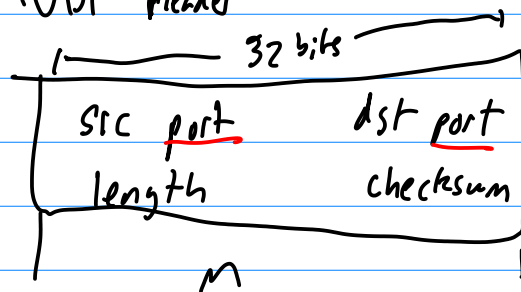 32 bits
src port dst port
length checksum
M